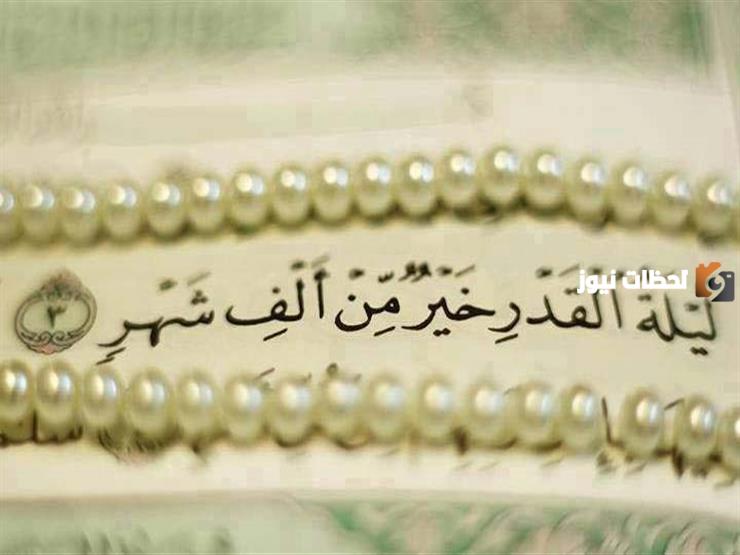 لحظات نيوز
لَيْلَةُ الْقَدْرِ خَيْرٌ مِّنْ أَلْفِ شَهْرٍ ٣